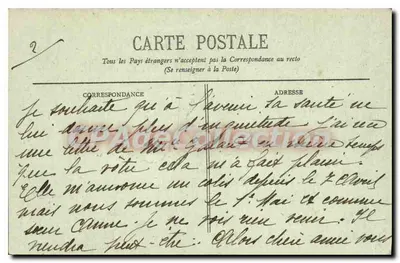 2
CARTE POSTALE
Tous les Pays étrangers n'acceptent pas la Correspondance au recto
(Se renseigner à la Poste)
CORRESPONDANCE
ADRESSE
Je souhaite qu'à l'avenir sa santé ne
lui donne plus d'inquiétude J'ai eu
une lettre de en même temps
que la vôtre cela m'a fait plaisir.
Elle m'annonce un colis depuis le 7 Avril
mais nous sommes le 1er Mai et comme
sœur Anne je ne vois rien venir. Il
viendra peut-être. Alors chère amie vous